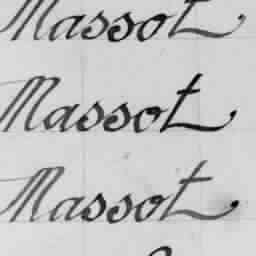 Massot
Massot
Massot